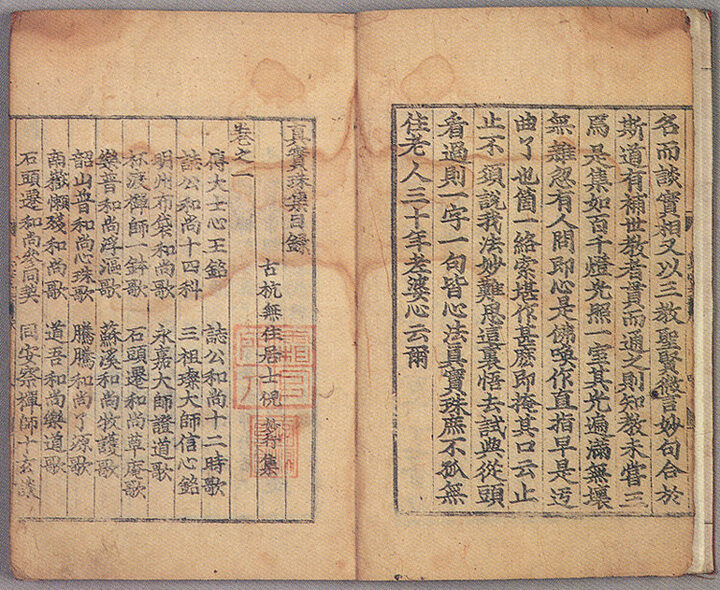 名而談實相又以三教聖賢微言妙句合於
斯道有補世教者貫而通之則知教未嘗三
爲是集如百千燈光照一室其光遍滿無壞
無雜忽有人問即心是佛喚作直指早是迂
曲了也箇一絡索堪作甚麽即掩其口云止
止不須說我法妙難思這裏悟去試與從頭
看過則一字一句皆心法真實珠庶不孤無
住老人三十年老婆心云爾
真實珠集目錄
古杭無住居士倪 集
卷之一
傅大士心王銘 誌公和尚十二時歌
誌公和尚十四科 三祖璨大師信心銘
明州布袋和尚歌 永嘉大師證道歌
杯渡禪師一鉢歌 石頭遷和尚草庵歌
樂普和尚浮漚歌 蘇溪和尚牧護歌
韶山普和尚心珠歌 騰騰和尚了源歌
南嶽懶殘和尚歌 道吾和尚樂道歌
石頭遷和尚叅同契 同安察禪師十玄談